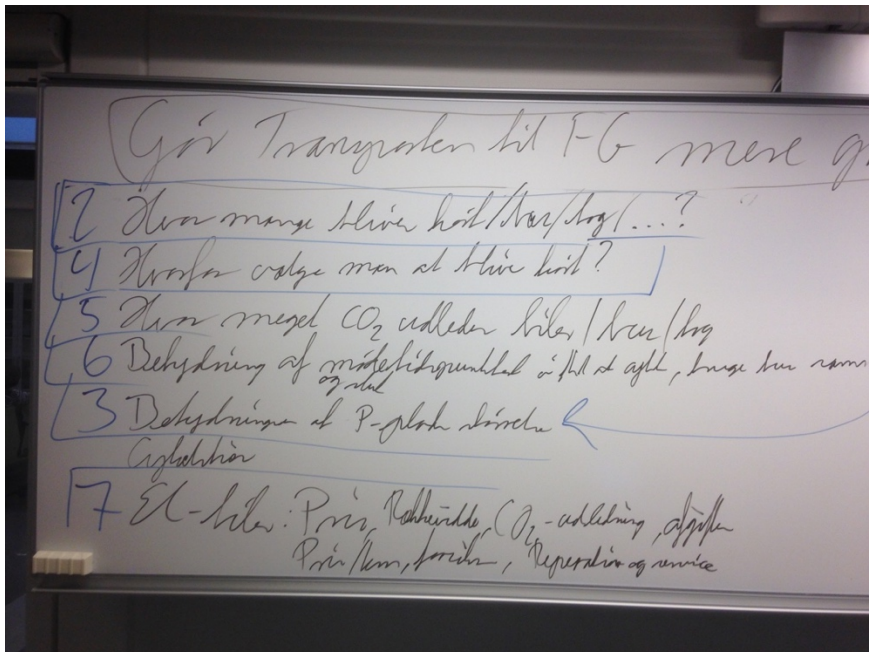 Gør Transporten til FG mere
2 Hvor mange bliver kørt/bus/tog/...?
4 Hvorfor vælge man at blive kørt?
5 Hvor meget CO2 udleder biler/bus/tog
6 Betydning af mødetidspunktet at cykle, bruge bus
3 Betydningen af P-plads størrelse
7 El-biler: Pris, Rækkevidde, CO2-udledning, afgifter
Pris/km, Reparation og service